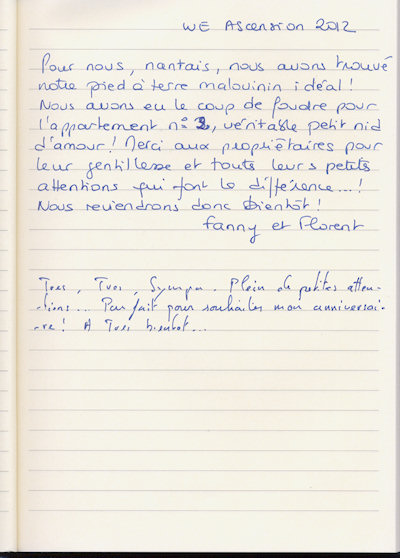 WE Ascension 2012
Pour nous, nantais, nous avons trouvé
notre pied à terre malouinin idéal !
Nous avons eu le coup de foudre pour
l'appartement n° 2, véritable petit nid
d'amour ! Merci aux propriétaires pour
leur gentillesse et touts leurs petits
attentions qui font la différence...!
Nous reviendrons donc bientôt !
Fanny et Florent
Tres, Tres, Sympa. Plein de petites atten-
-tions... Parfait pour souhaiter mon anniversai-
-re ! A Tres bientot...